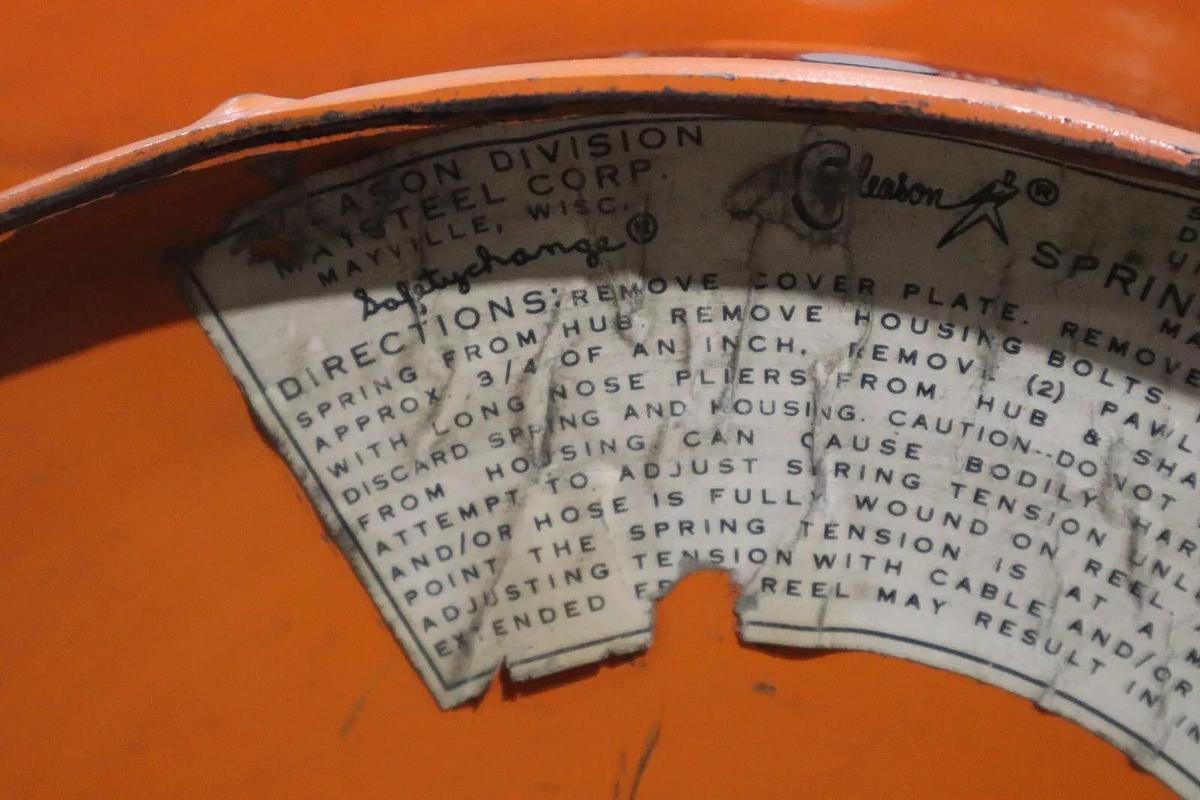 EASON DIVISION
MAYSTEEL CORP.
MAYVILLE, WISC.
Safetychange®
Gleason ®
SPRIN
DIRECTIONS: REMOVE COVER PLATE. REMOVE
SPRING FROM HUB. REMOVE HOUSING BOLTS
APPROX. 3/4 OF AN INCH. REMOVE (2) PAWL
WITH LONG NOSE PLIERS FROM HUB & SHA
DISCARD SPRING AND HOUSING. CAUTION--DO NOT
FROM HOUSING CAN CAUSE BODILY HAR
ATTEMPT TO ADJUST SPRING TENSION UNL
AND/OR HOSE IS FULLY WOUND ON REEL. A
POINT THE SPRING TENSION IS AT A M
ADJUSTING TENSION WITH CABLE AND/OR
EXTENDED FR REEL MAY RESULT IN IN